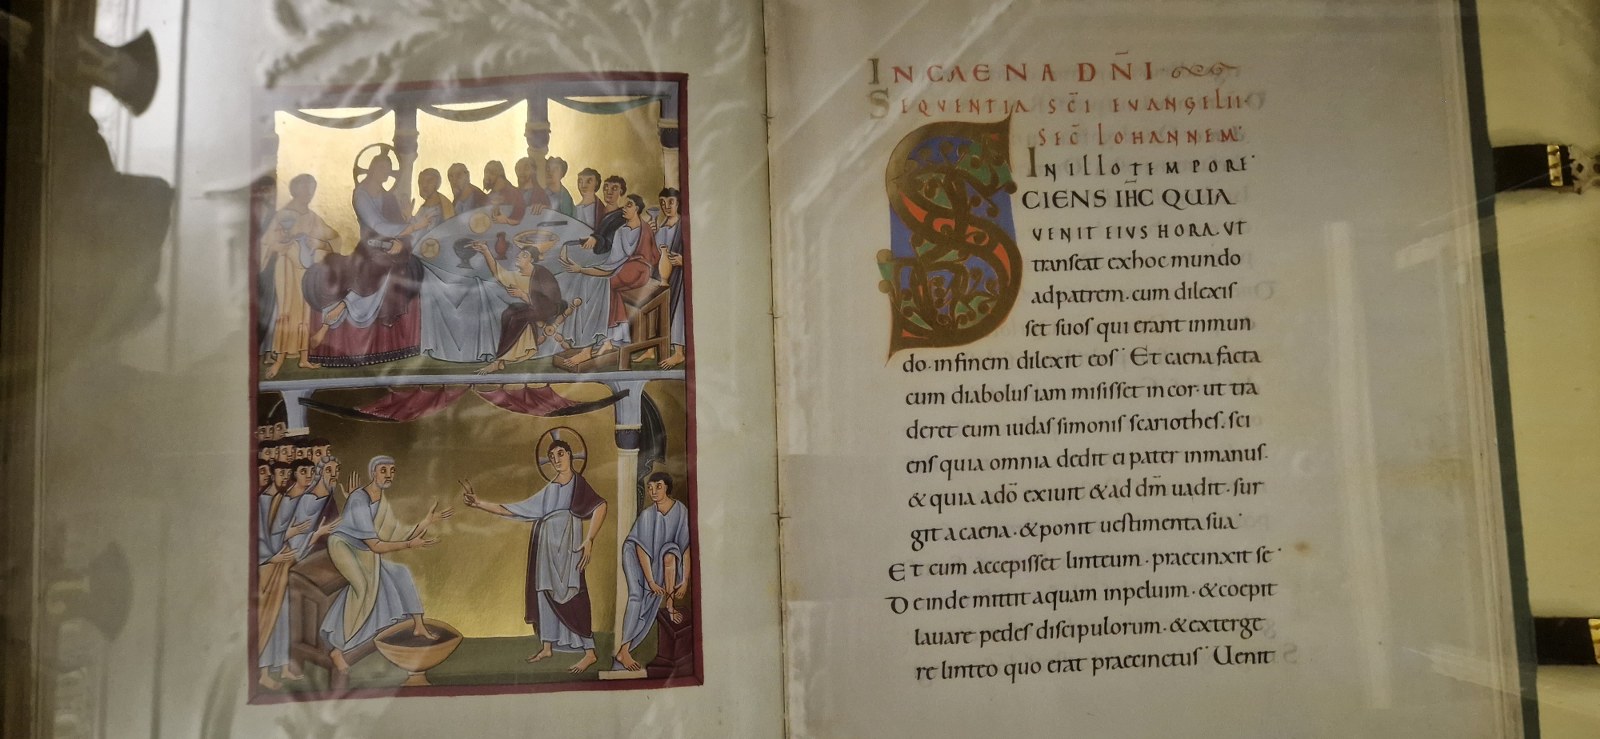 IN CAENA DN̄I
SEQVENTIA SC̄I EVANGELII
SEC̄ IOHANNEM
IN ILLO TEMPORE
SCIENS IH̄C QUIA
VENIT EIVS HORA. VT
tranſeat exhoc mundo
adpatrem. cum dilexiſ
ſet ſuoſ qui erant inmun
do. infinem dilexit eoſ. Et caena facta
cum diaboluſ iam miſiſſet in cor. ut tra
deret eum iudaſ ſimoniſ ſcariotheſ. ſci
enſ quia omnia dedit ei pater inmanuſ.
& quia adō exiuit & ad dm̄ uadit. ſur
git a caena. & ponit ueſtimenta ſua.
Et cum accepiſſet linteum. praecinxit ſe.
Deinde mittit aquam inpeluim. & coepit
lauare pedeſ diſcipulorum. & exterge
re linteo quo erat praecinctuſ. Uenit